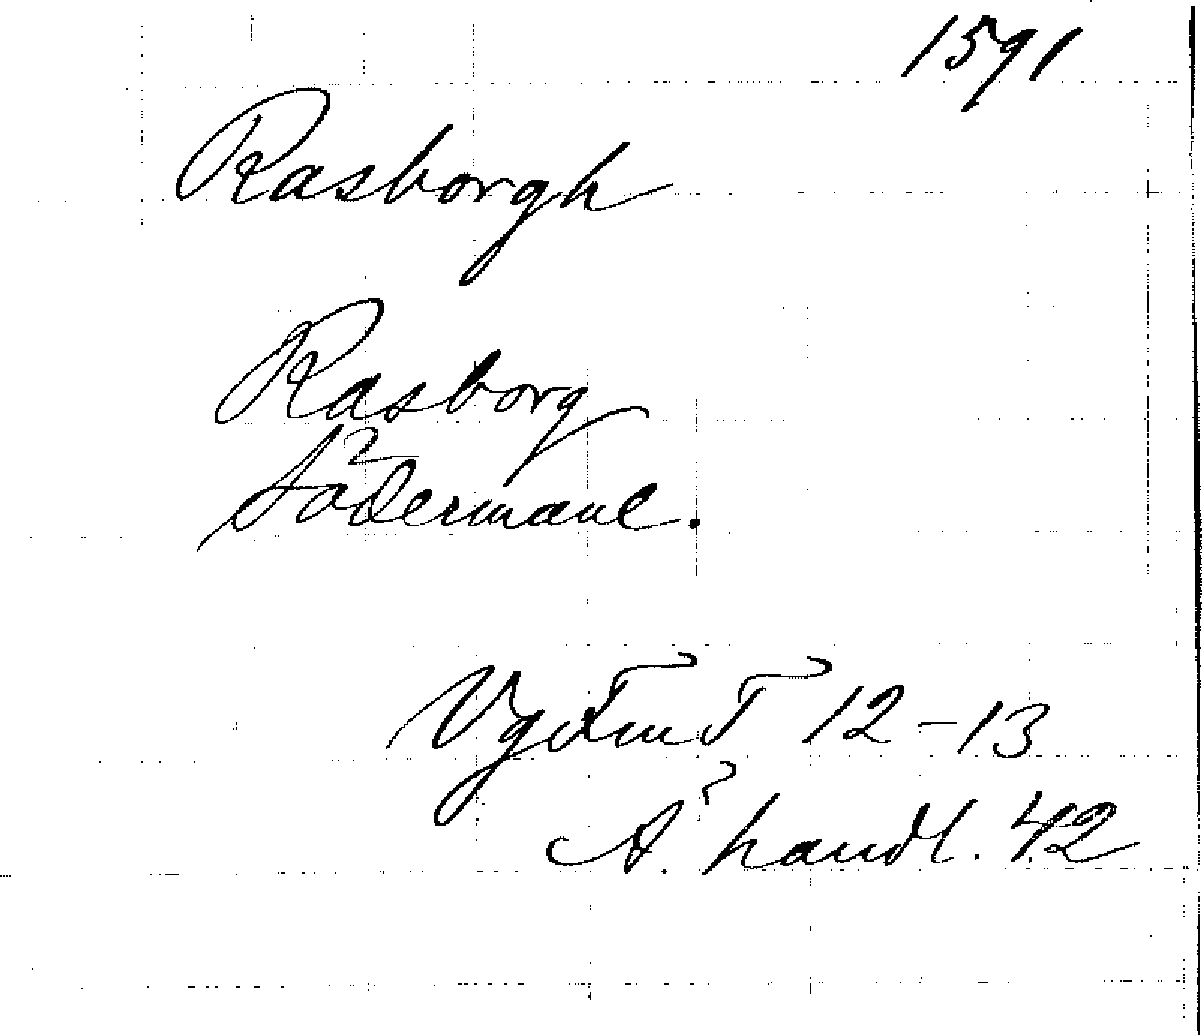 1591
Rasborgh
Rasborg
Södermanl.
12-13
handl. 42